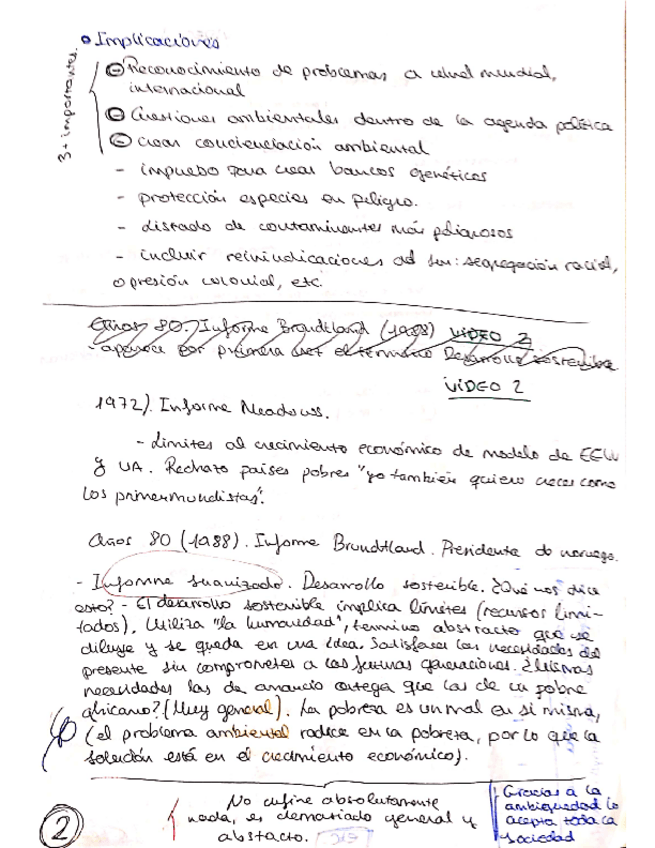 • Implicaciones
3 + importantes.
⊖ Reconocimiento de problemas a nivel mundial,
internacional
⊖ Cuestiones ambientales dentro de la agenda política
⊖ Crear concienciación ambiental
- impuesto para crear bancos genéticos
- protección especies en peligro.
- listado de contaminantes más peligrosos
- incluir reivindicaciones del sur: segregación racial,
opresión colonial, etc.
Años 80. Informe Brundtland (1988) VIDEO 2
- aparece por primera vez el término Desarrollo sostenible
VIDEO 2
1972). Informe Meadows.
- Límites al crecimiento económico de modelo de EEUU
y UA. Rechazo países pobres "yo también quiero crecer como
los primermundistas".
Años 80 (1988). Informe Brundtland. Presidenta de noruega.
- Informe suavizado. Desarrollo sostenible. ¿Qué nos dice
esto? - El desarrollo sostenible implica límites (recursos limi-
tados). Utiliza "la humanidad", termino abstracto que se
diluye y se queda en una idea. Satisfacer las necesidades del
presente sin comprometer a las futuras generaciones. ¿Mismas
necesidades las de amancio ortega que las de un pobre
africano? (Muy general). La pobreza es un mal en si misma,
(el problema ambiental radica en la pobreza, por lo que la
solución está en el crecimiento económico).
No define absolutamente
nada, es demasiado general y
abstracto.
Gracias a la
ambigüedad lo
acepta toda la
sociedad
2